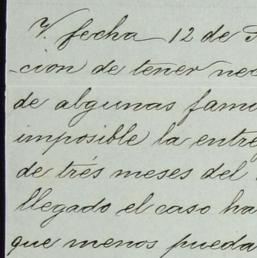 V. fecha 12 de
-cion de tener nec
de algunas fami
imposible la entre
de trés meses del
llegado el caso ha
que menos pueda